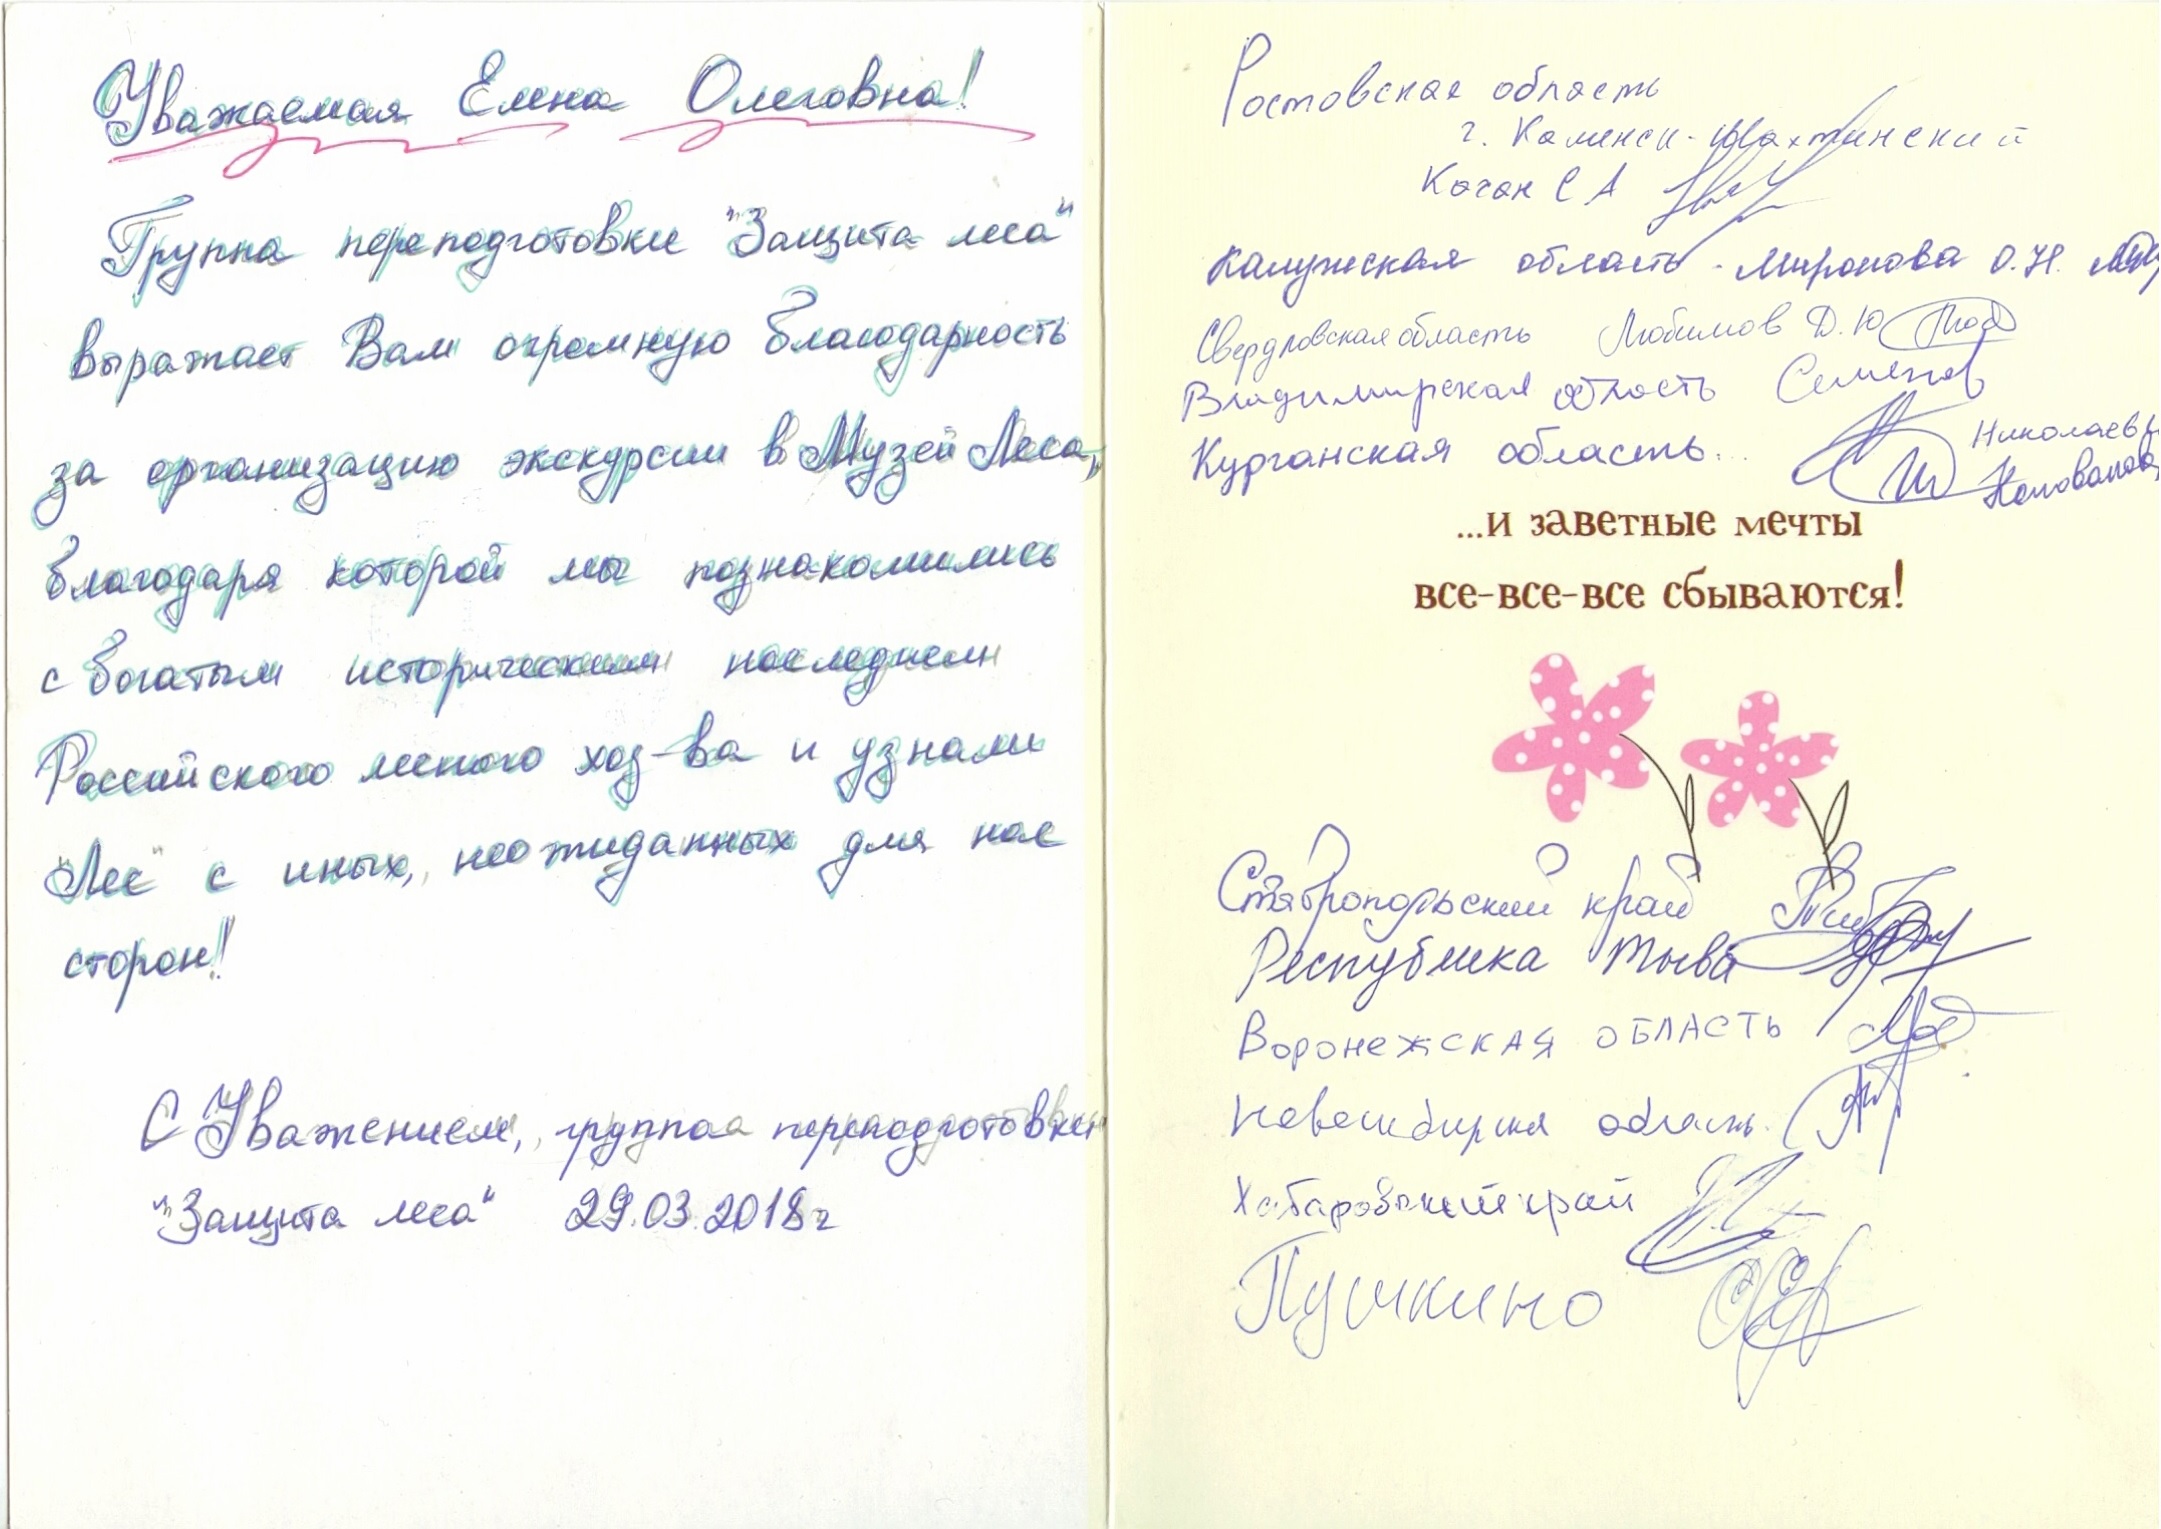 Уважаемая Елена Олеговна!
Группа переподготовки "Защита леса"
выражает Вам огромную благодарность
за организацию экскурсии в "Музей Леса",
благодаря которой мы познакомились
с богатым историческим наследием
Российского лесного хоз-ва и узнали
"Лес" с иных, неожиданных для нас
сторон!
С Уважением, группа переподготовки
"Защита леса" 29.03.2018г
Ростовская область
г. Каменск-Шахтинский
Качан С А
Калужская область - Миронова О.Н.
Свердловская область Любимов Д.Ю
Владимирская область Семенов
Курганская область... Николаевы
...и заветные мечты
все-все-все сбываются!
Ставропольский край
Республика Тыва
Воронежская область
Новосибирская область.
Хабаровский край
Пушкино